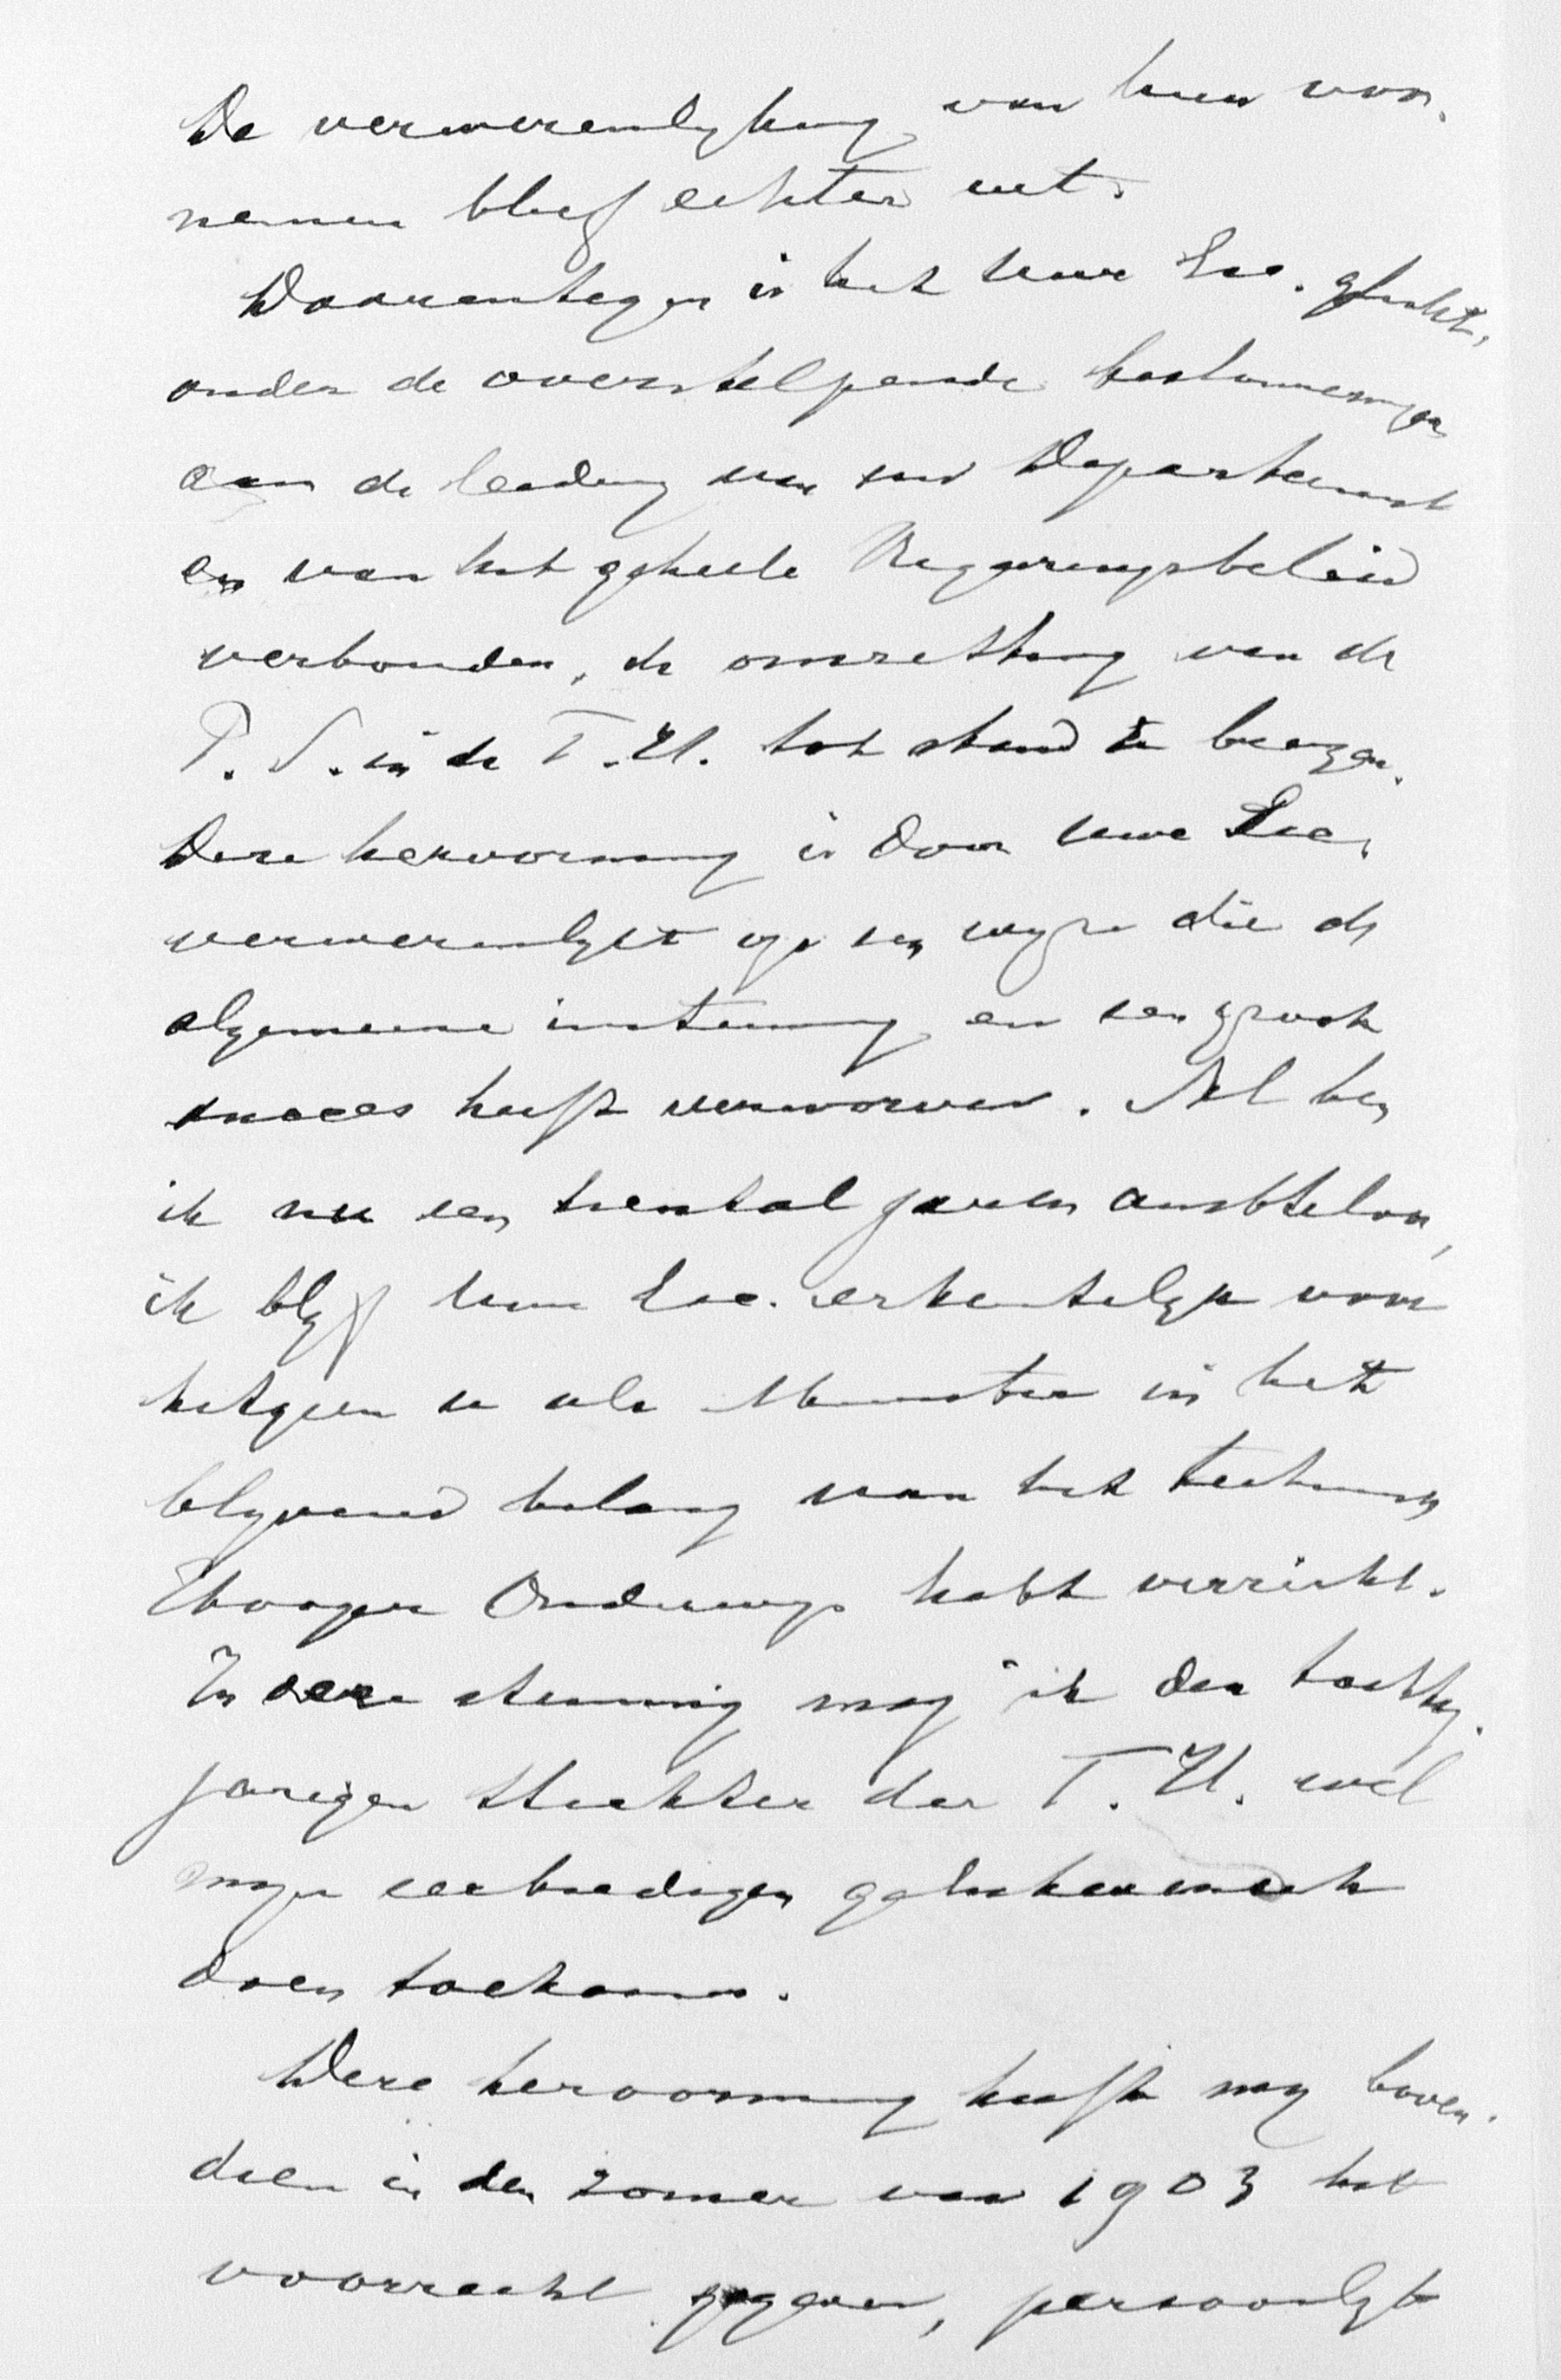 De verwerenlijking van hun voor-
nemen bleef echter uit.
Daarentegen is het Uwe Exc. gelukt,
onder de overstelpende beslommeringen
aan de leiding van uw Departement
en van het geheele Regeringsbeleid
verbonden, de omzetting van de
P. S. in de T. H. tot stand te brengen.
Deze hervorming is door Uwe Exc.
verwerenlijkt op een wijze die de
algemeene instemming en een groot
succes heeft verworven. Al ben
ik nu een tiental jaren ambteloos,
ik blijf Uwe Exc. erkentelijk voor
hetgeen u als Minister in het
blijvend belang van het Technisch
Hooger Onderwijs hebt verricht.
In deze stemming mag ik den tachtig-
jarigen stichter der T. H. wel
mijn eerbiedigen gelukwensch
doen toekomen.
Deze hervorming heeft mij boven-
dien in den zomer van 1903 het
voorrecht gegeven, persoonlijk